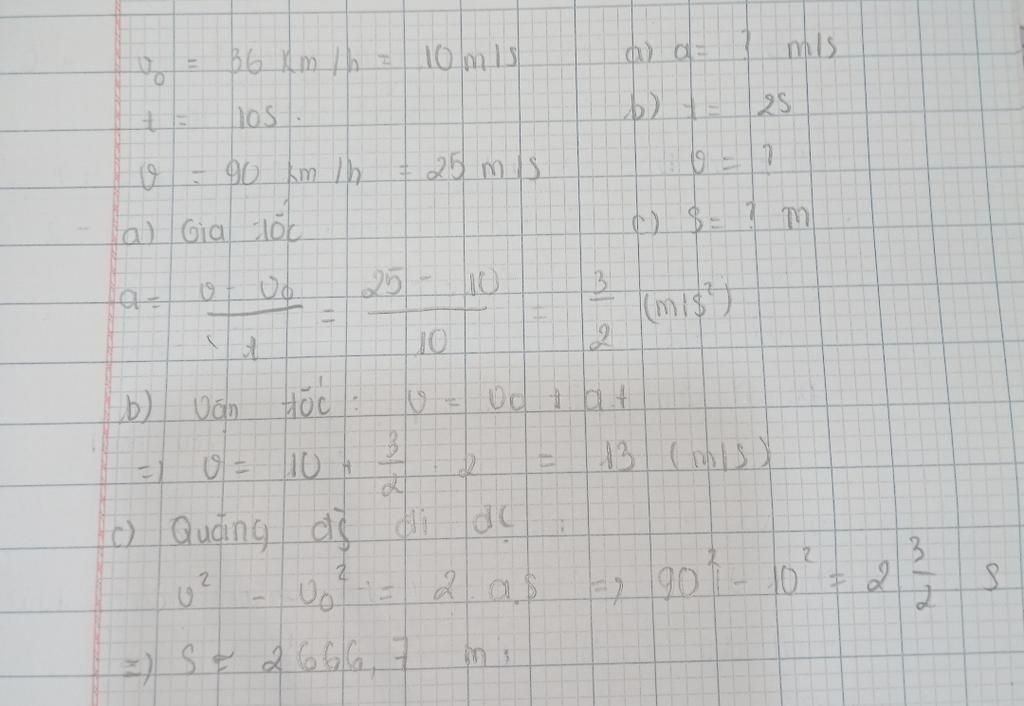 v₀ = 36 km/h = 10 m/s a) a = ? m/s
t = 10s. b) t = 2s
v = 90 km/h = 25 m/s v = ?
a) Gia tốc c) S = ? m
a = (v - v₀)/t = (25 - 10)/10 = 3/2 (m/s²)
b) Vận tốc : v = v₀ + a.t
=) v = 10 + 3/2 . 2 = 13 (m/s)
c) Quãng đg đi đc :
v² - v₀² = 2.a.s =) 90² - 10² = 2 3/2 S
=) S = 2666,7 m.